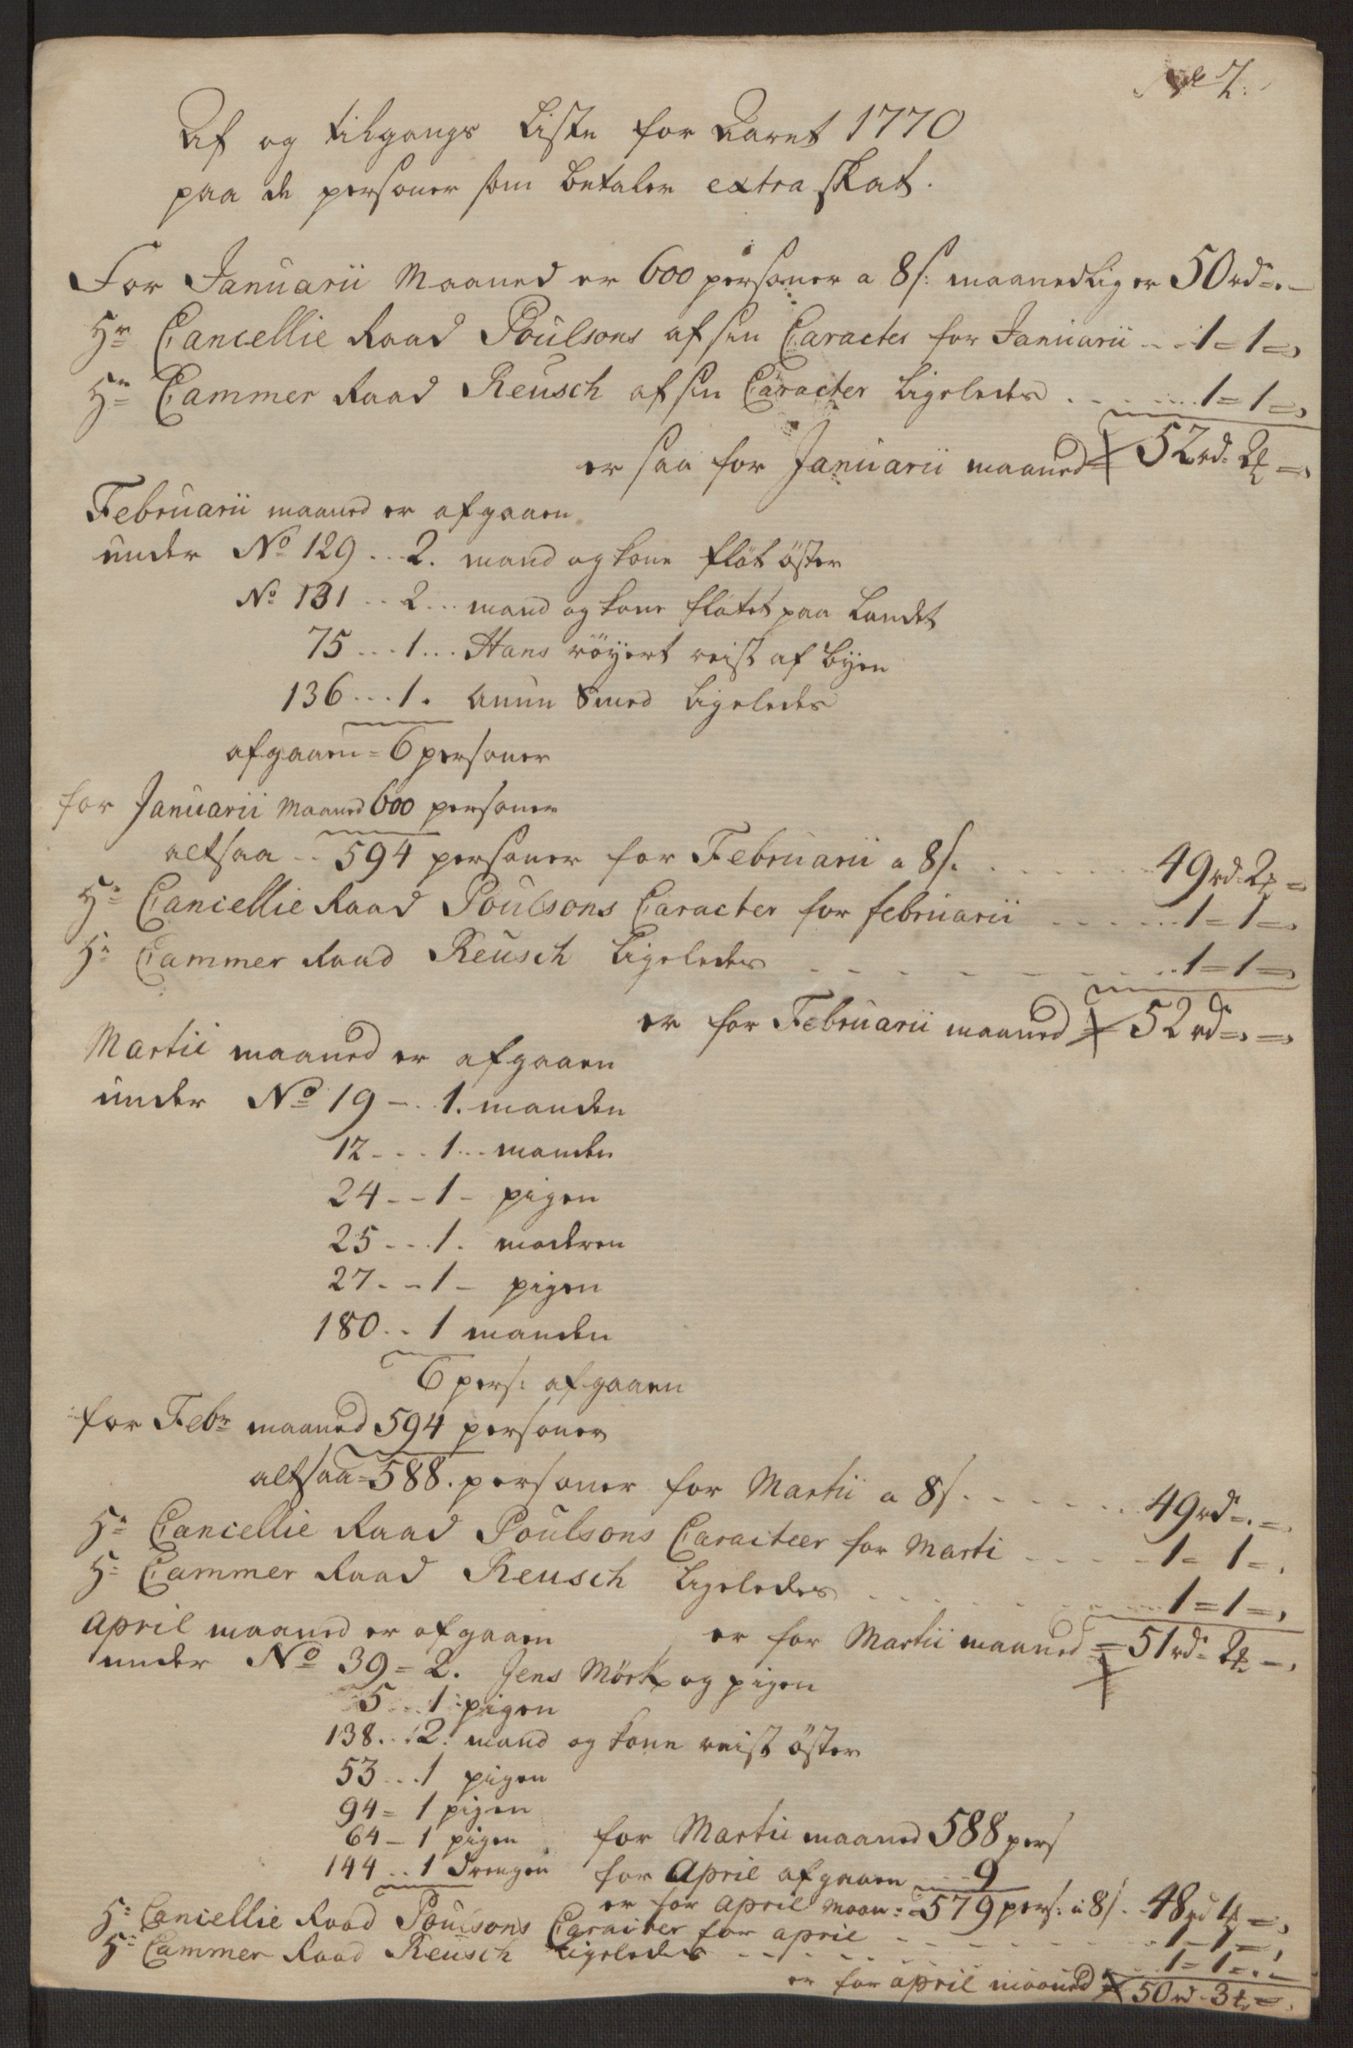 No 7.
Af og tilgangs Liste for Aaret 1770
paa de personer som betaler extra skat.
For Januarii Maaned er 600 personer a 8 s: maanedlig er 50 rd = . —
Hr Cancellie Raad Poulsons af sin Caracter for Januarii . . 1 = 1 =,
Hr Cammer Raad Reusch af sin Caracter Ligeledes . . . . . . 1 = 1 =,
er saa for Januarii maaned = 52 rd. 2 —,
Februarii maaned er afgaaen
under No 129 . . 2. mand og kone fløt öster
No 131 . . 2 . . mand og kone fløtet paa Landet
75 . . . 1 . . . Hans röyert reist af byen
136 . . . 1 . Smed Ligeledes
afgaaen = 6 personer
for Januarii Maaned 600 personer
altsaa . . 594 personer for Februarii a 8 s. . . . . . . . 49 rd. 2 =
Hr Cancellie Raad Poulsons Caracter for februarii . . . . . . 1 = 1 =,
Hr Cammer Raad Reusch Ligeledes . . . . . . . . . 1 = 1 =,
er for Februarii maaned = 52 rd =, =,
Martii maaned er afgaaen
under No 19 — . 1. manden
12 . . . 1 . . manden
24 . — 1 — pigen
25 . . . 1 . moderen
27 . — 1 — pigen
180 . . 1 manden
6 pers: afgaaen
for Febr maaned 594 personer
altsaa = 588. personer for Martii a 8 s. . . . . . . 49 rd = . =
Hr Cancellie Raad Poulsons Caracteer for Marti . . . . . 1 = 1 = .
Hr Cammer Raad Reusch Ligeledes . . . . . . . . 1 = 1 =,
April maaned er afgaaen er for Martii maaned = 51 rd = 2 —,
under No 39 = 2. Jens Mörk og pigen
5 . . . 1 : pigen
138 . . 2. mand og kone reist öster
53 . . . 1 pigen
94 = 1 pigen
64 — 1 pigen for Martii maaned 588 pers
144 . . 1 Drengen for April afgaaen . . . 9
er for April Maan: = 579 pers: a 8 s. . 48 rd 1 =,
Hr Cancellie Raad Poulsons Caracter for april . . . . . . . 1 = 1 =,
Hr Cammer Raad Reusch Ligeledes . . . . . . . . . 1 = 1 = . —
er for april maaned = 50 rd = 3 = .